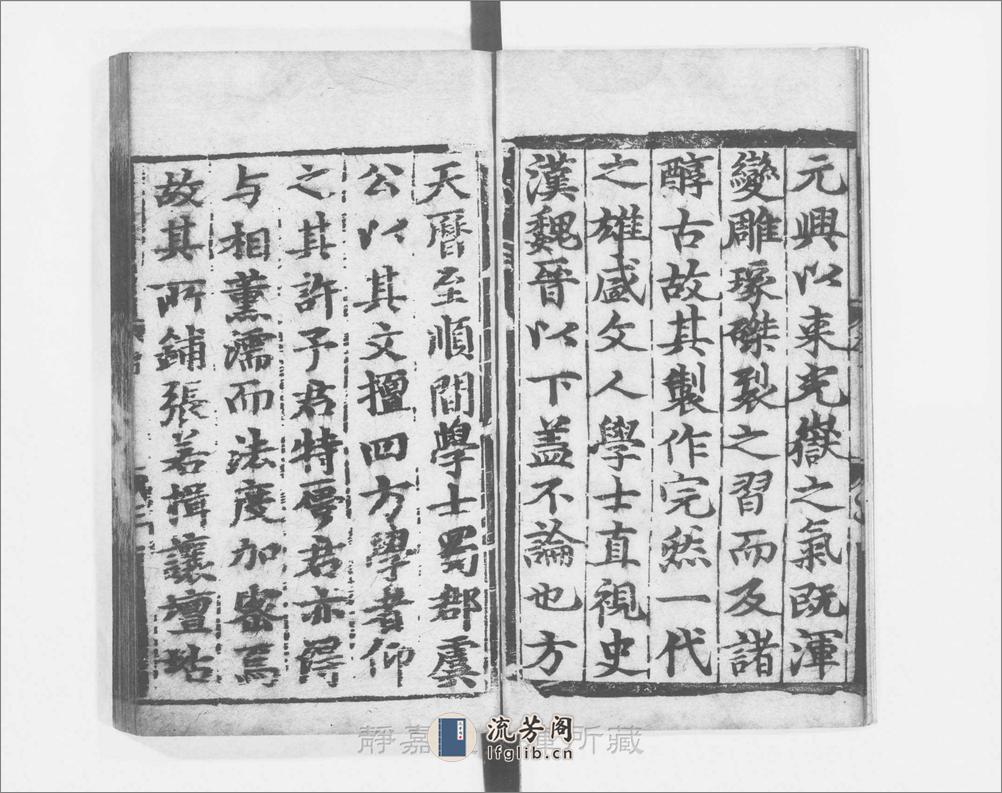 元興以来光嶽之氣既渾
變雕瑑磔裂之習而及諸
醇古故其製作完然一代
之雄盛文人學士直視史
漢魏晉以下蓋不論也方
天曆至順間學士蜀郡虞
公以其文擅四方學者仰
之其許予君特厚君亦得
与相薰濡而法度加密焉
故其所鋪張若揖讓壇坫
靜嘉 所藏
流芳阁
lfglib.cn